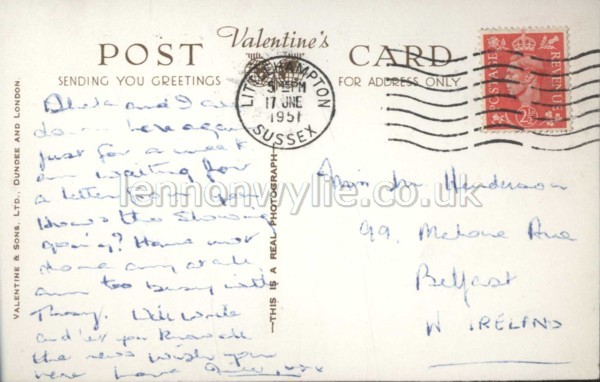 Valentine's
POST CARD
SENDING YOU GREETINGS FOR ADDRESS ONLY
LITTLEHAMPTON
PM
17 JNE
1951
SUSSEX
POSTAGE
REVENUE
VALENTINE & SONS, LTD., DUNDEE AND LONDON
THIS IS A REAL PHOTOGRAPH
and I are
down here again
just for a week
am waiting for
a letter from you
How's the
going? Have not
done any at all
am too busy with
. Will write
and let you know all
the news wish you
were here Love xxx
Henderson
99. Malone Ave
Belfast
N IRELAND
lennonwylie.co.uk